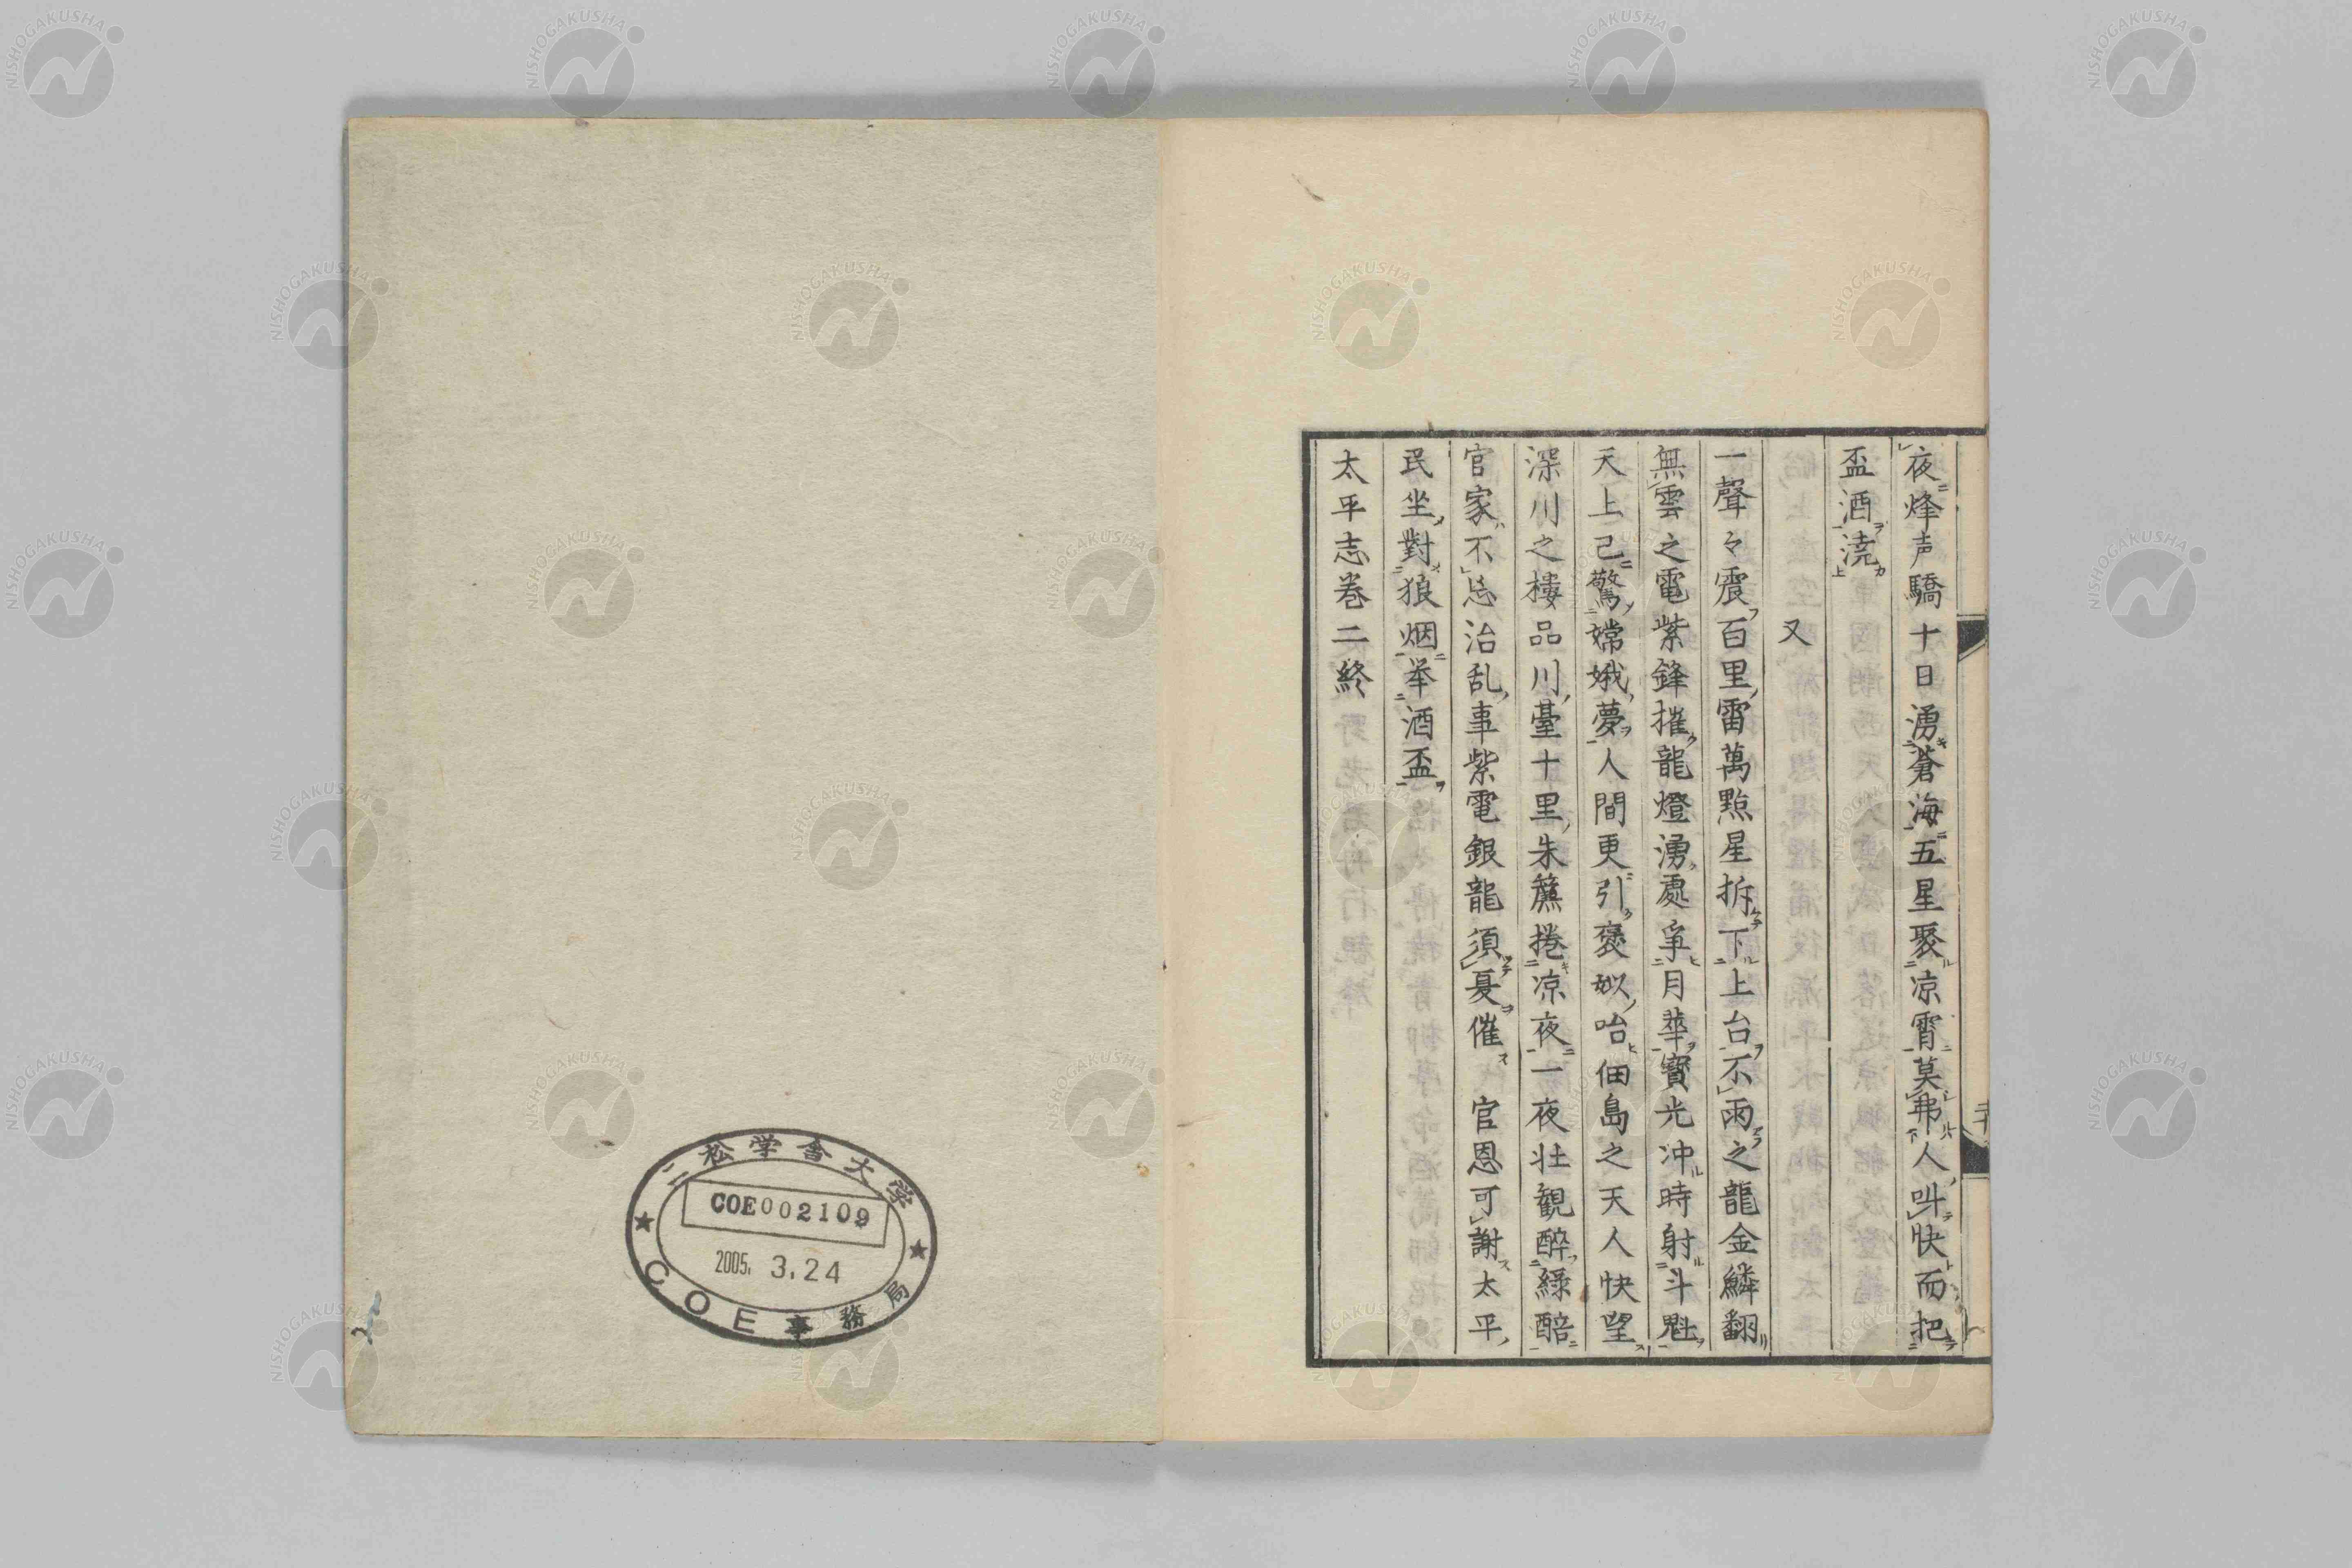 夜烽声驕十日湧蒼海五星聚凉霄莫弗人叫快而把
盃酒澆
又
一聲々震百里雷萬點星拆下上台不雨之龍金鱗翻
無雲之電紫鋒摧龍燈湧處爭月華寳光冲時射斗魁
天上已驚嫦娥夢人間更引褒姒咍佃島之天人快望
深川之樓品川臺十里朱簾捲凉夜一夜壮観醉緑醅
官家不忘治乱事紫電銀龍須戛催 官恩可謝太平
民坐對狼烟举酒盃
太平志巻二終
二松学舎大学
COE002109
2005. 3.24
COE事務局
NISHOGAKUSHA